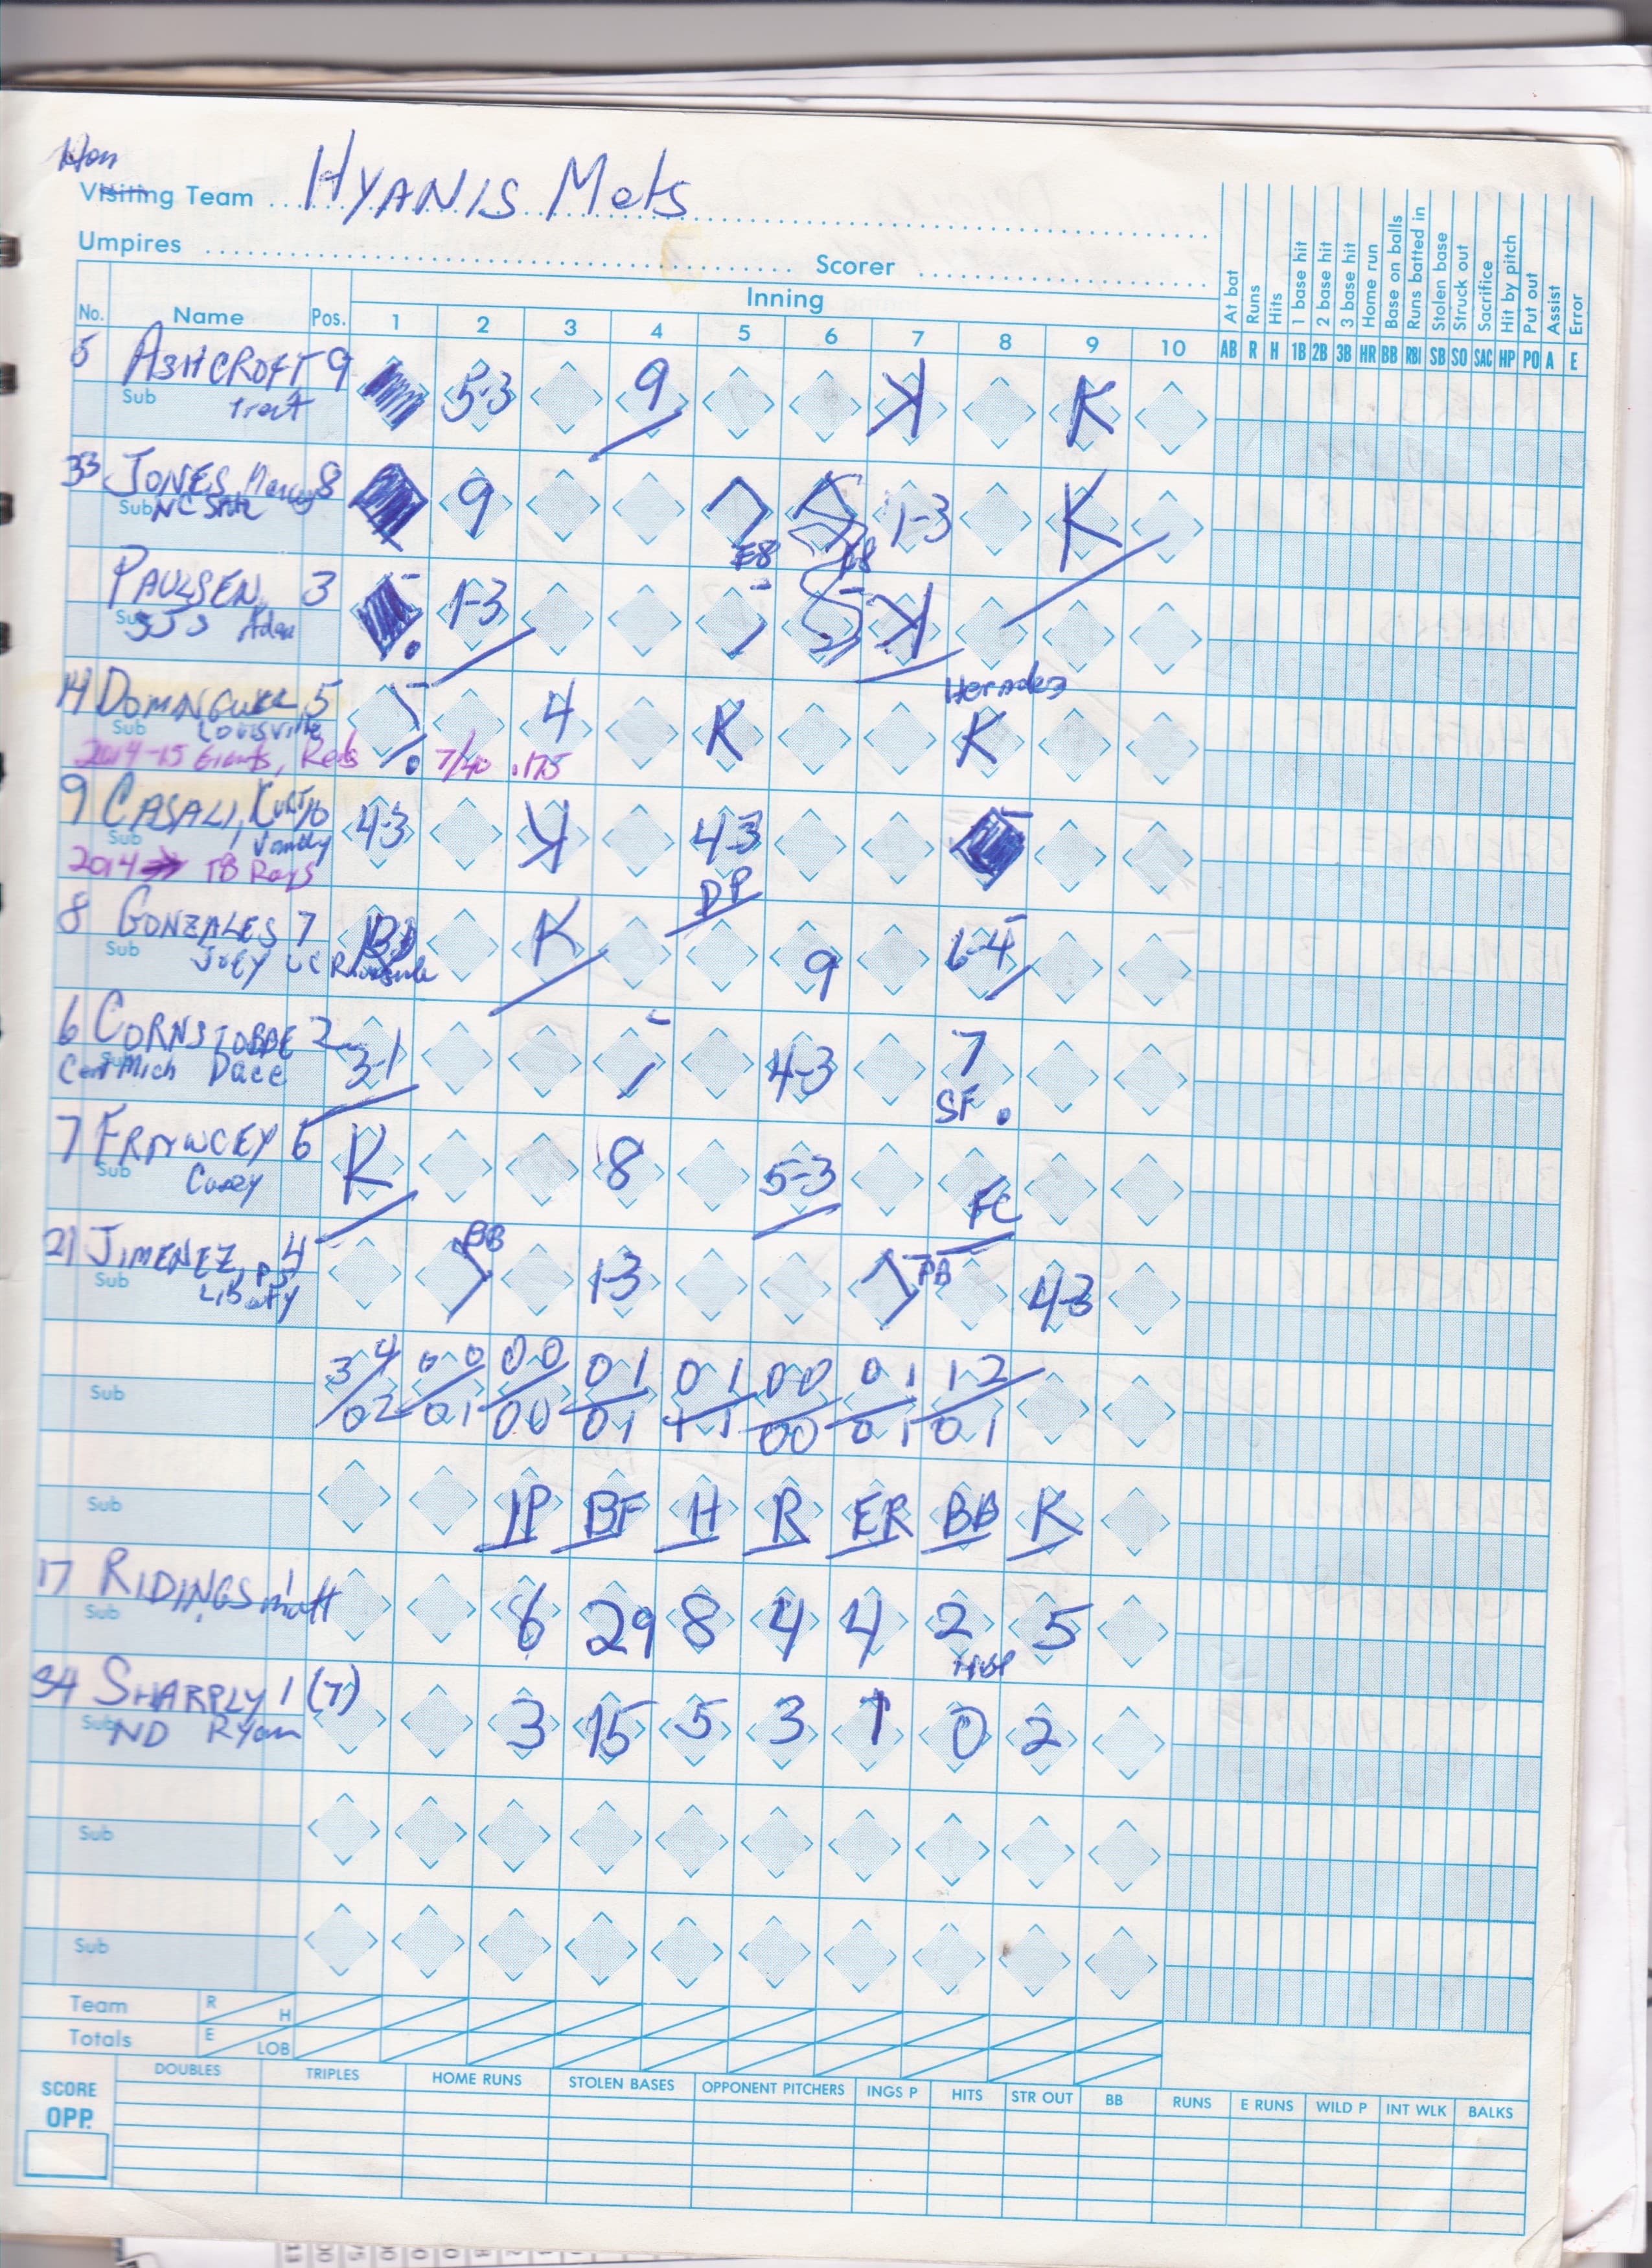 Hom
Visiting Team HYANIS Mets
Umpires Scorer
No. Name Pos. Inning
1 2 3 4 5 6 7 8 9 10
At bat Runs Hits 1 base hit 2 base hit 3 base hit Home run Base on balls Runs batted in Stolen base Struck out Sacrifice Hit by pitch Put out Assist Error
AB R H 1B 2B 3B HR BB RBI SB SO SAC HP PO A E
5 ASHCROFT 9 5-3 9 K K
Sub Trent
33 JONES, Marcus 8 9 1-3 K
Sub NC State E8 E8
PAULSEN 3 1-3 K
Sub Adam
14 DOMINGUEZ 5 4 K Hernadez K
Sub Louisville
2014-15 Giants, Reds 7/40 .175
9 CASALI, CURT 10 4-3 K 4-3
Sub Vandy DP
2014 → TB Rays
8 GONZALES 7 K 9 6-4
Sub Joey UC Riverside
6 CORNSTOBBE 2 3-1 4-3 7
Sub Cent Mich Dace SF
7 FRAWCEY 6 K 8 5-3 FC
Sub Casey
21 JIMENEZ, P 4 BB 1-3 BB 4-3
Sub Liberty
3 4 0 0 0 0 0 1 0 1 0 0 0 1 1 2
Sub 0 2 0 1 0 0 0 1 1 1 0 0 0 1 0 1
Sub IP BF H R ER BB K
17 RIDINGS, Matt 1 6 29 8 4 4 2 5
Sub HBP
34 SHARPLY 1 (7) 3 15 5 3 1 0 2
Sub ND Ryan
Sub
Sub
Team R H
Totals E LOB
SCORE OPP. DOUBLES TRIPLES HOME RUNS STOLEN BASES OPPONENT PITCHERS INGS P HITS STR OUT BB RUNS E RUNS WILD P INT WLK BALKS